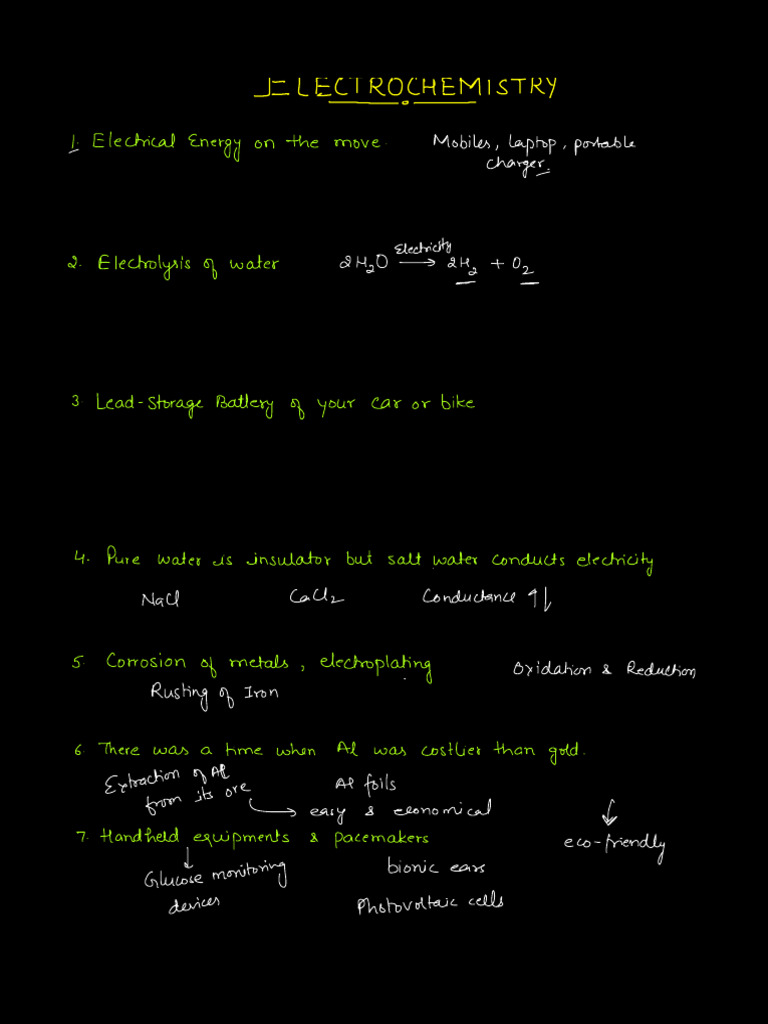 ELECTROCHEMISTRY
1. Electrical Energy on the move. Mobiles, laptop, portable
charger.
2. Electrolysis of water 2H₂O —Electricity→ 2H₂ + O₂
3. Lead-Storage Battery of your car or bike
4. Pure water is insulator but salt water conducts electricity
NaCl CaCl₂ Conductance ↑↓
5. Corrosion of metals, electroplating Oxidation & Reduction
Rusting of Iron
6. There was a time when Al was costlier than gold.
Extraction of Al Al foils
from its ore → easy & economical ↓
7. Handheld equipments & pacemakers eco-friendly
↓
Glucose monitoring bionic ears
devices Photovoltaic cells